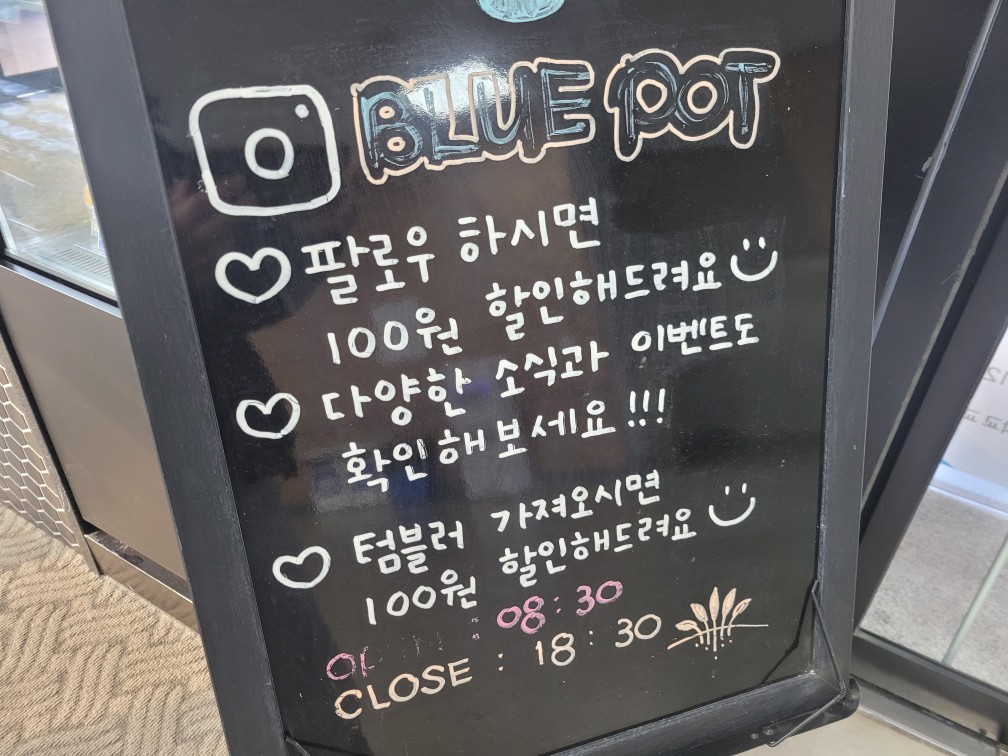 BLUE POT
팔로우 하시면
100원 할인해드려요
다양한 소식과 이벤트도
확인해보세요!!!
텀블러 가져오시면
100원 할인해드려요
: 08:30
CLOSE : 18:30